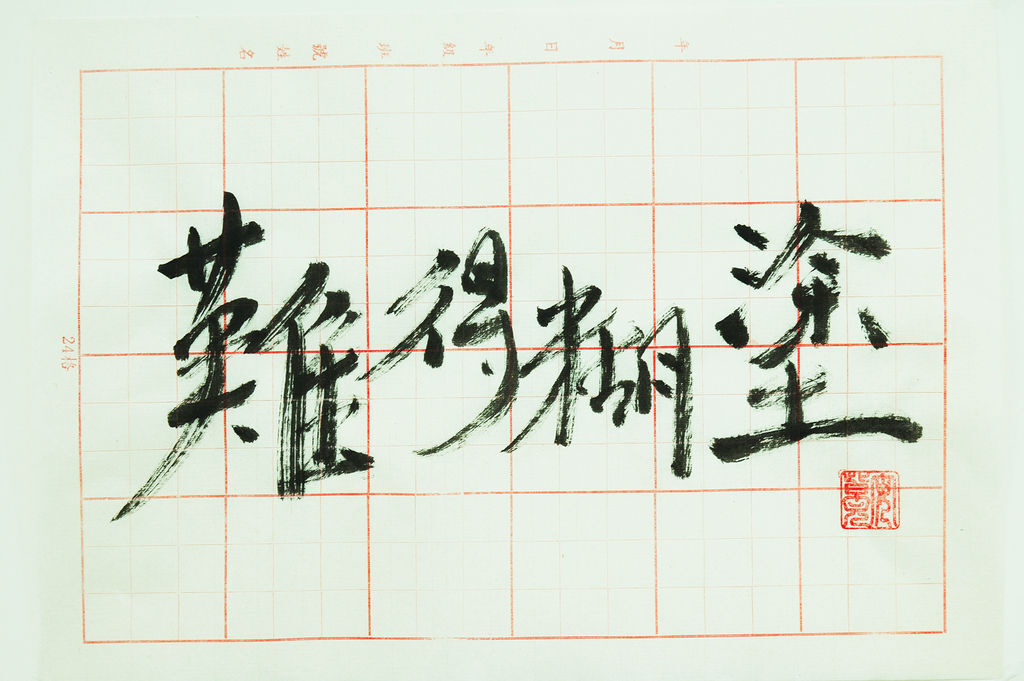 年 月 日 年 級 班 號 姓 名
難得糊塗
24格